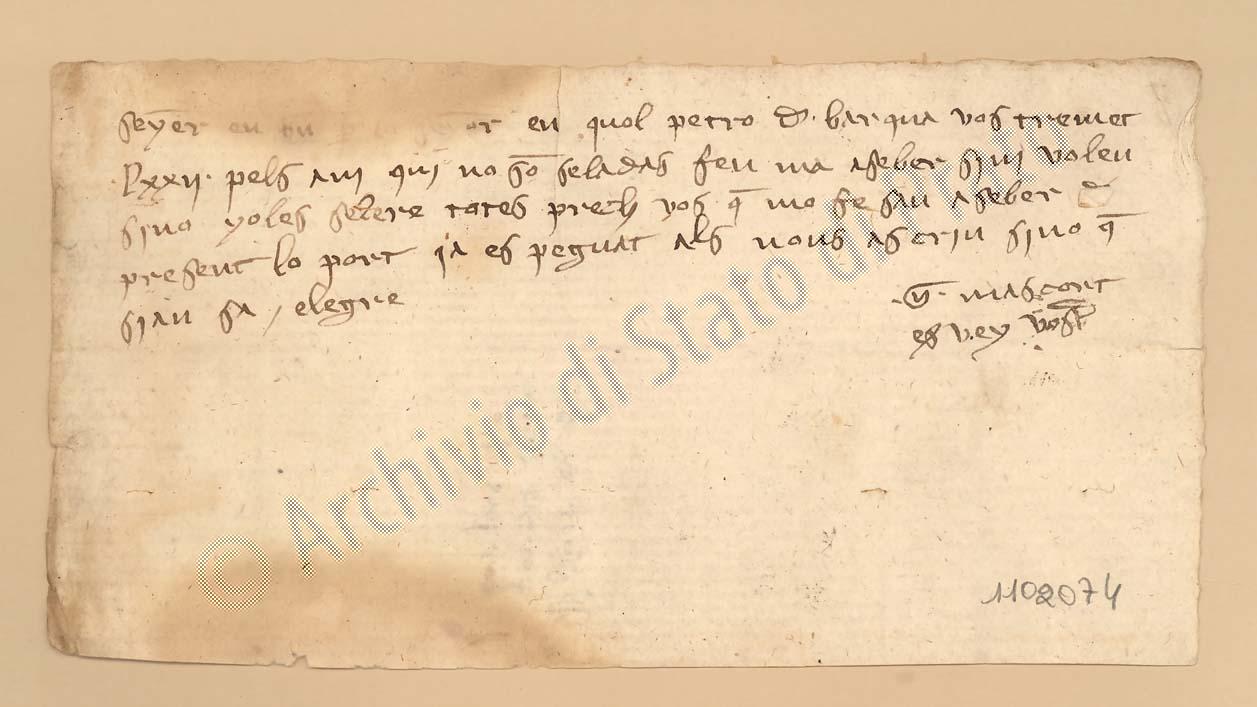 seyer en en quol petro d. barqua vos tremet
.Lxxii. pels avi qui no sō seladas feu ma a seber si vi voleu
sino yo les selere totes prech vos q̄ mo fesau a seber d
present lo port ja es peguat als nous a scriu sino q̄
siau sa / elegre
.G̅. mascort
es vey vost
© Archivio di Stato di
1102074